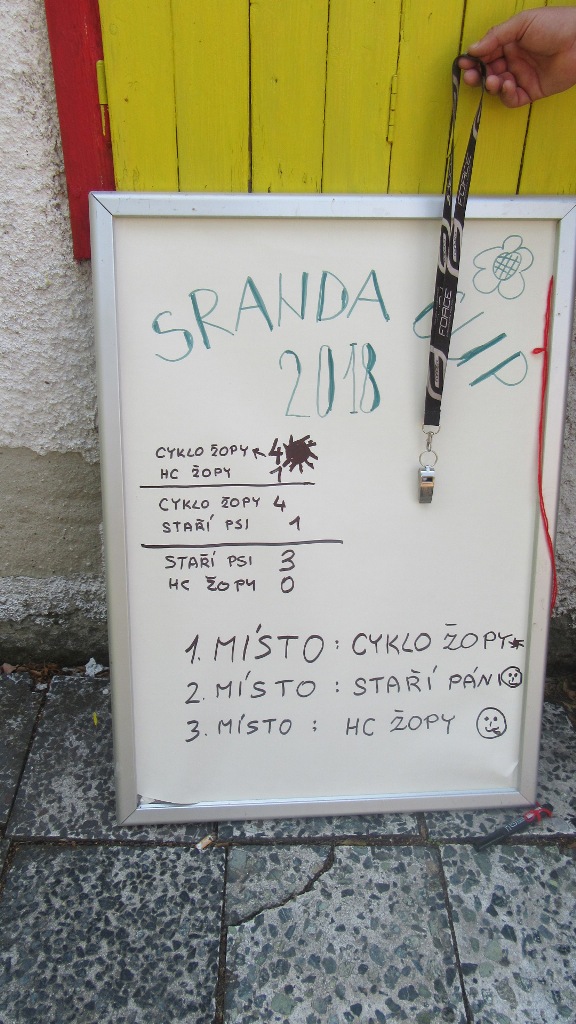 SRANDA CUP
2018
CYKLO ŽOPY 4
HC ŽOPY 1
CYKLO ŽOPY 4
STAŘÍ PSI 1
STAŘÍ PSI 3
HC ŽOPY 0
1. MÍSTO: CYKLO ŽOPY
2. MÍSTO: STAŘÍ PÁNI
3. MÍSTO: HC ŽOPY
FORCE
FORCE